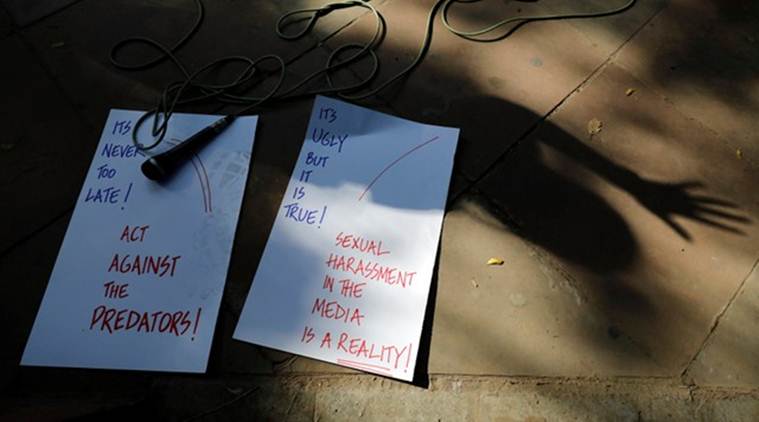 IT'S
NEVER
TOO
LATE!
ACT
AGAINST
THE
PREDATORS!
IT'S
UGLY
BUT
IT
IS
TRUE!
SEXUAL
HARASSMENT
IN THE
MEDIA
IS A REALITY!